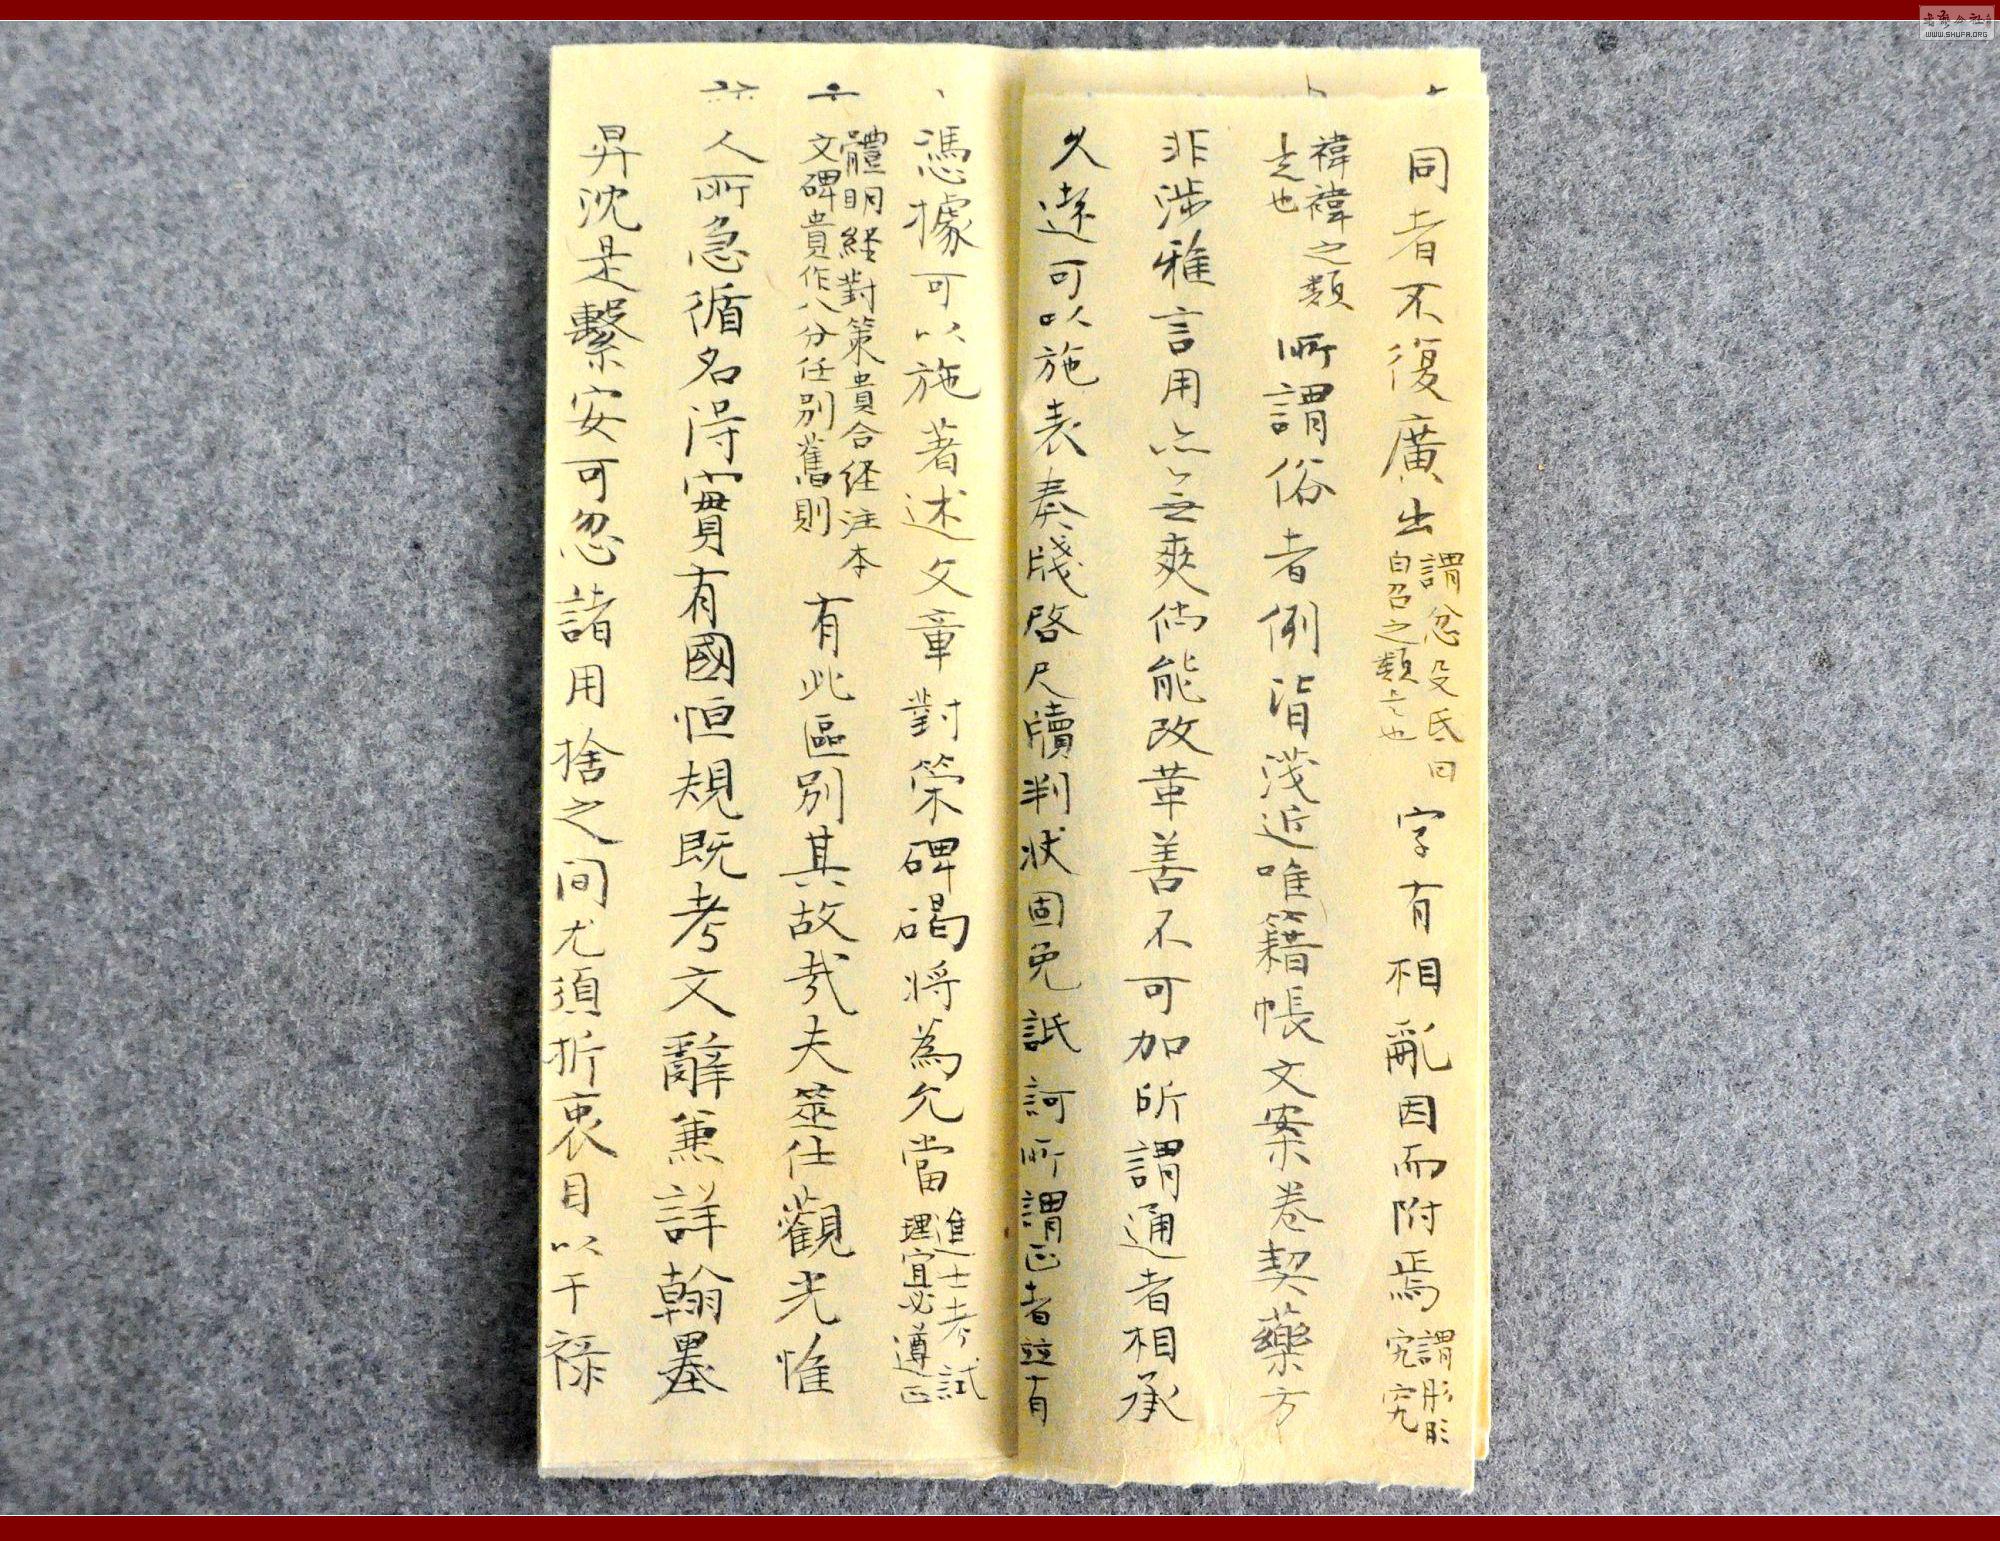 同者不復廣出謂忿殳氐回白召之類是也字有相亂因而附焉謂彤肜宄究
禕褘之類是也所謂俗者例皆淺近唯籍帳文案卷契藥方
非涉雅言用亦無爽倘能改革善不可加所謂通者相承
久遠可以施表奏牋啓尺牘判狀固免詆訶所謂正者並有
憑據可以施著述文章對策碑碣將為允當進士考試理宜必遵正
體明経對策貴合経注本文碑貴作八分任別舊則有此區別其故何哉夫筮仕觀光惟
人所急循名淂實有國恒規既考文辭兼詳翰墨
昇沈是繫安可忽諸用捨之間尤須折衷目以干祿
書齋公社
www.SHUFA.ORG